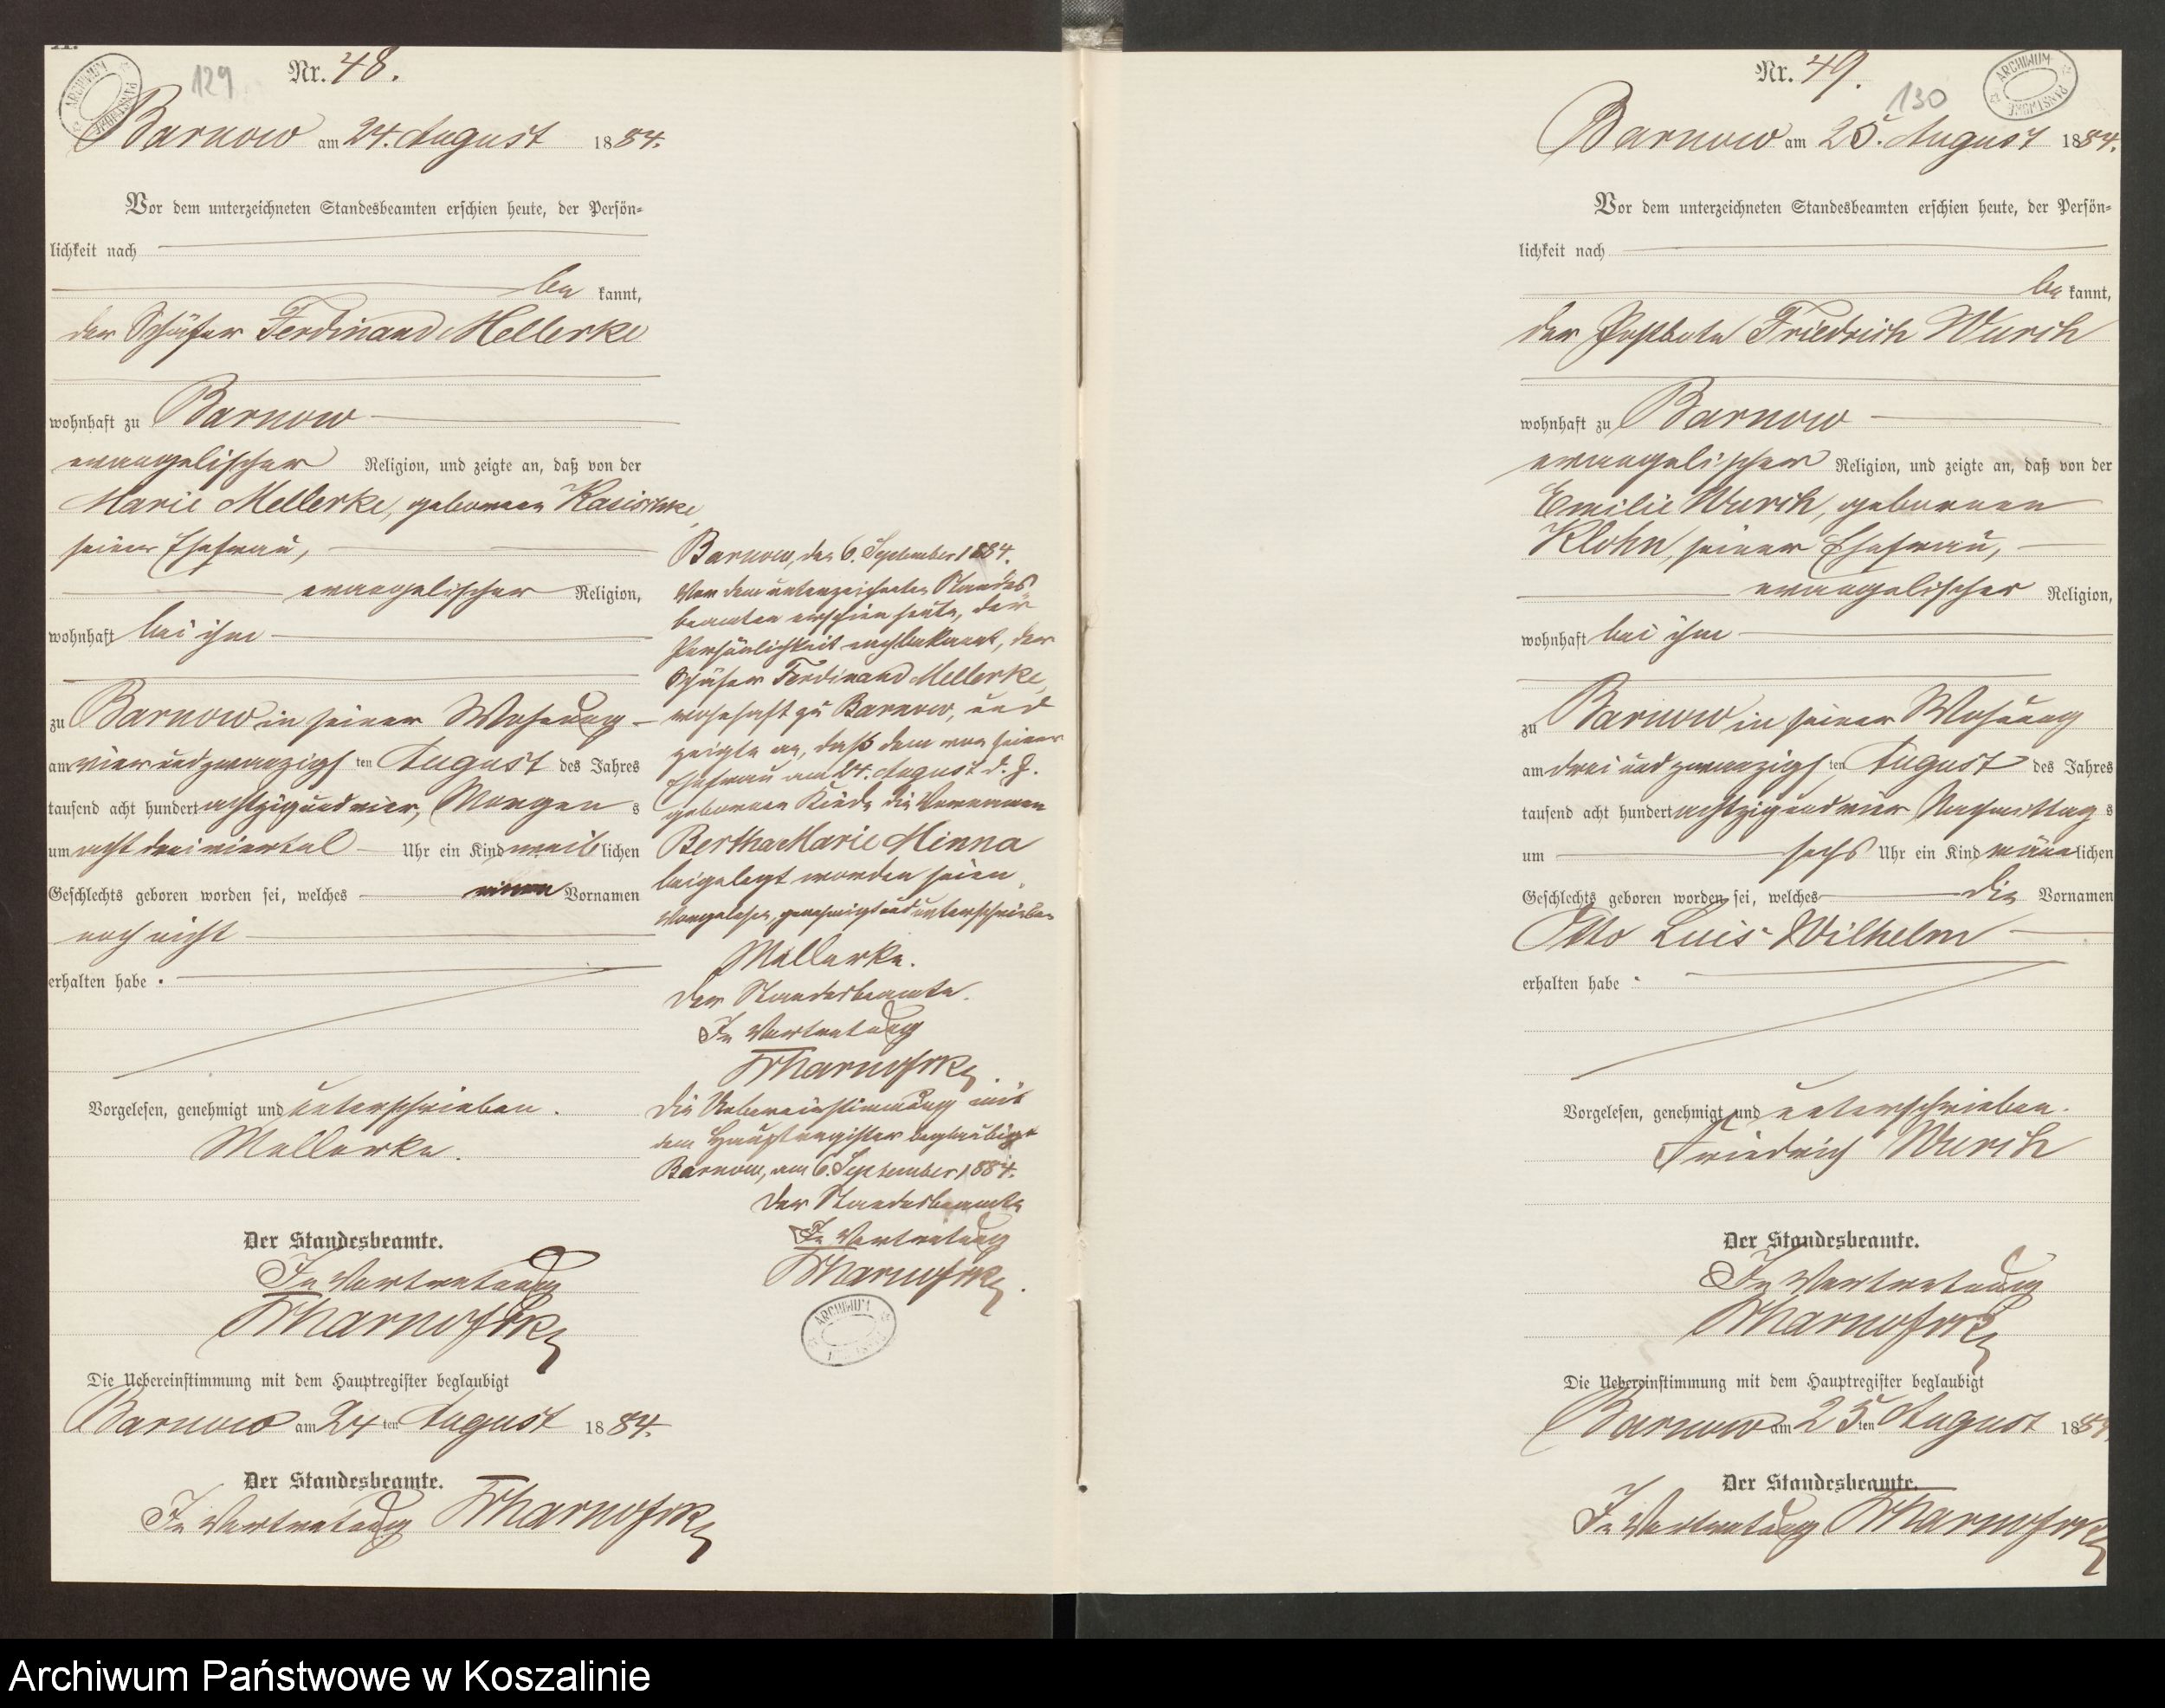 129
Nr. 48.
Barnow am 24. August 1884.
Vor dem unterzeichneten Standesbeamten erschien heute, der Persön=
lichkeit nach
be kannt,
der Schäfer Ferdinand Mellerke
wohnhaft zu Barnow
evangelischer Religion, und zeigte an, daß von der
Marie Mellerke, geborenen
seiner Ehefrau,
evangelischer Religion,
wohnhaft bei ihm
zu Barnow in seiner Wohnung
am vier und zwanzigs ten August des Jahres
tausend acht hundert achtzig und vier, Morgen s
um acht dreiviertel Uhr ein Kind weib lichen
Geschlechts geboren worden sei, welches einen Vornamen
noch nicht
erhalten habe.
Vorgelesen, genehmigt und unterschrieben.
Mellerke.
Der Standesbeamte.
In Vertretung
Die Uebereinstimmung mit dem Hauptregister beglaubigt
Barnow am 24 ten August 1884.
Der Standesbeamte.
In Vertretung
Barnow, den 6. September 1884.
Vor dem unterzeichneten Standes=
beamten erschien heute, der
Persönlichkeit nach bekannt, der
Schäfer Ferdinand Mellerke,
wohnhaft zu Barnow, und
zeigte an, daß dem von seiner
Ehefrau am 24. August d. J.
geborenen Kinde die Vornamen
Bertha Marie Minna
beigelegt worden seien.
Vorgelesen, genehmigt und unterschrieben
Mellerke.
Der Standesbeamte.
In Vertretung
Die Uebereinstimmung mit
dem Hauptregister beglaubigt
Barnow, am 6. September 1884.
Der Standesbeamte
In Vertretung
ARCHIWUM
Nr. 49.
130
ARCHIWUM PAŃSTWOWE
Barnow am 25. August 1884.
Vor dem unterzeichneten Standesbeamten erschien heute, der Persön=
lichkeit nach
be kannt,
der Postbote Friedrich Wurch
wohnhaft zu Barnow
evangelischer Religion, und zeigte an, daß von der
Emilie Wurch, geborenen
Klohn, seiner Ehefrau,
evangelischer Religion,
wohnhaft bei ihm
zu Barnow in seiner Wohnung
am drei und zwanzigs ten August des Jahres
tausend acht hundert achtzig und vier Nachmittag s
um sechs Uhr ein Kind männ lichen
Geschlechts geboren worden sei, welches die Vornamen
Otto Luis Wilhelm
erhalten habe.
Vorgelesen, genehmigt und unterschrieben.
Friedrich Wurch
Der Standesbeamte.
In Vertretung
Die Uebereinstimmung mit dem Hauptregister beglaubigt
Barnow am 25 ten August 1884.
Der Standesbeamte.
In Vertretung
Archiwum Państwowe w Koszalinie